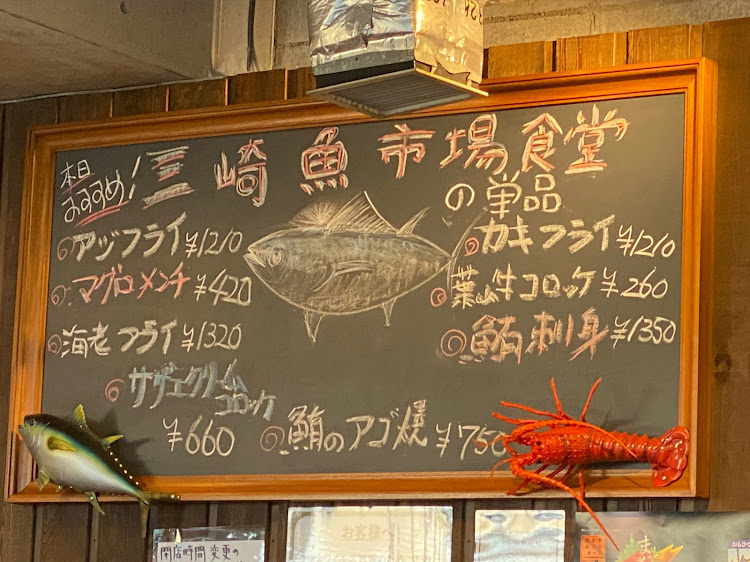 本日
おすすめ！
三崎魚市場食堂
の単品
アジフライ ¥1210
マグロメンチ ¥420
海老フライ ¥1320
サザエクリーム
コロッケ
¥660
カキフライ ¥1210
葉山牛コロッケ ¥260
鮪刺身 ¥1350
鮪のアゴ焼 ¥750
開店時間変更の
お客様へ